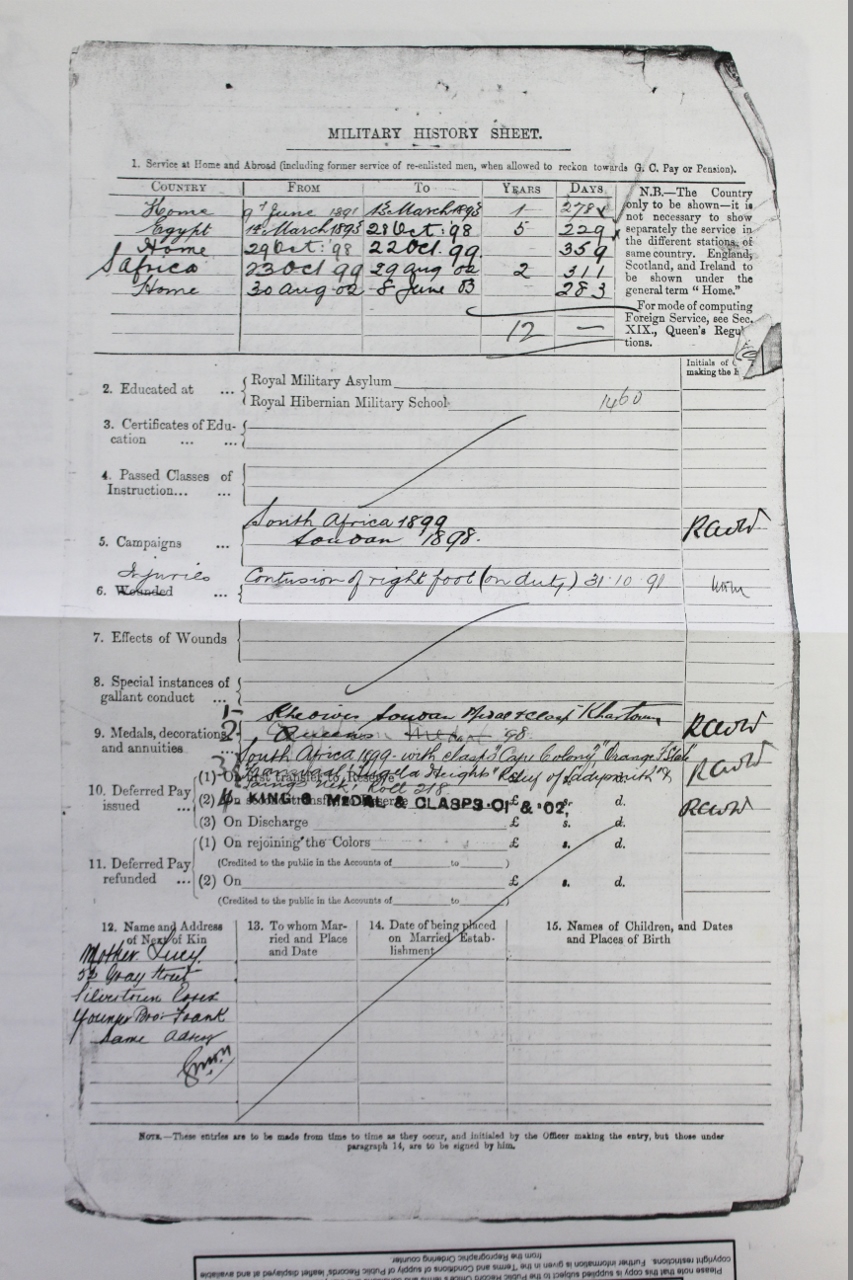 MILITARY HISTORY SHEET.
1. Service at Home and Abroad (including former service of re-enlisted men, when allowed to reckon towards G. C. Pay or Pension).
COUNTRY FROM TO YEARS DAYS
Home 9th June 1891 13 March 1893 1 278
Egypt 14 March 1893 28 Oct: '98 5 229
Home 29 Oct: '98 22 Oct. 99. 359
S Africa 23 Oct 99 29 Aug 02 2 311
Home 30 Aug 02 8 June 03 283
12 —
N.B.—The Country
only to be shown—it is
not necessary to show
separately the service in
the different stations, of
same country. England,
Scotland, and Ireland to
be shown under the
general term "Home."
For mode of computing
Foreign Service, see Sec.
XIX., Queen's Regu
tions.
Initials of
making the
2. Educated at ... Royal Military Asylum
Royal Hibernian Military School 1460
3. Certificates of Edu-
cation ... ...
4. Passed Classes of
Instruction... ...
South Africa 1899
5. Campaigns ... Soudan 1898.
Injuries
6. Wounded ... Contusion of right foot (on duty) 31.10.91
7. Effects of Wounds
8. Special instances of
gallant conduct ...
1- Khedives Soudan Medal & clasp Khartoum
9. Medals, decorations
and annuities ...
2 Queens Medal '98
3 South Africa 1899 - with clasps "Cape Colony" "Orange F State
"Transvaal" "Tugela Heights" Relief of Ladysmith" &
Laings Nek; Roll 218
4. KING'S MEDAL & CLASPS 01 & '02,
10. Deferred Pay
issued ...
(1) On first transfer to Reserve
(2) On second transfer to Reserve £ s. d.
(3) On Discharge £ s. d.
11. Deferred Pay
refunded ...
(1) On rejoining the Colors £ s. d.
(Credited to the public in the Accounts of to )
(2) On £ s. d.
(Credited to the public in the Accounts of to )
12. Name and Address
of Next of Kin
13. To whom Mar-
ried and Place
and Date
14. Date of being placed
on Married Estab-
lishment
15. Names of Children, and Dates
and Places of Birth
Mother Lucy.
52 Gray Street
Silvertown Essex
Younger Bro: Frank
Same
NOTE.—These entries are to be made from time to time as they occur, and initialed by the Officer making the entry, but those under
paragraph 14, are to be signed by him.
Please note that this copy is supplied subject to the Public Record Office's terms and
copyright restrictions. Further information is given in the 'Terms and Conditions of supply of Public Records' leaflet displayed at and available
from the Reprographic Ordering counter